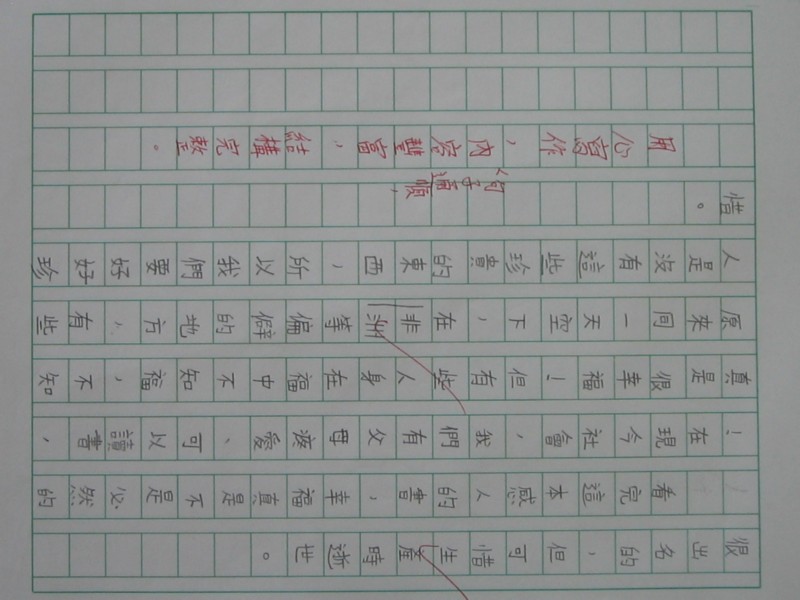 很出名的，但可惜生產時逝世。
看完這本感人的書，幸福真是不是必然的
！在現今社會，我們有父母疼愛、可以讀書，
真是很幸福！但有些人身在福中不知福，不知
原來同一天空下，在非洲等偏僻的地方，有些
人是沒有這些珍貴的東西，所以我們要好好珍
惜。
句子通順，
用心寫作，內容豐富，結構完整。